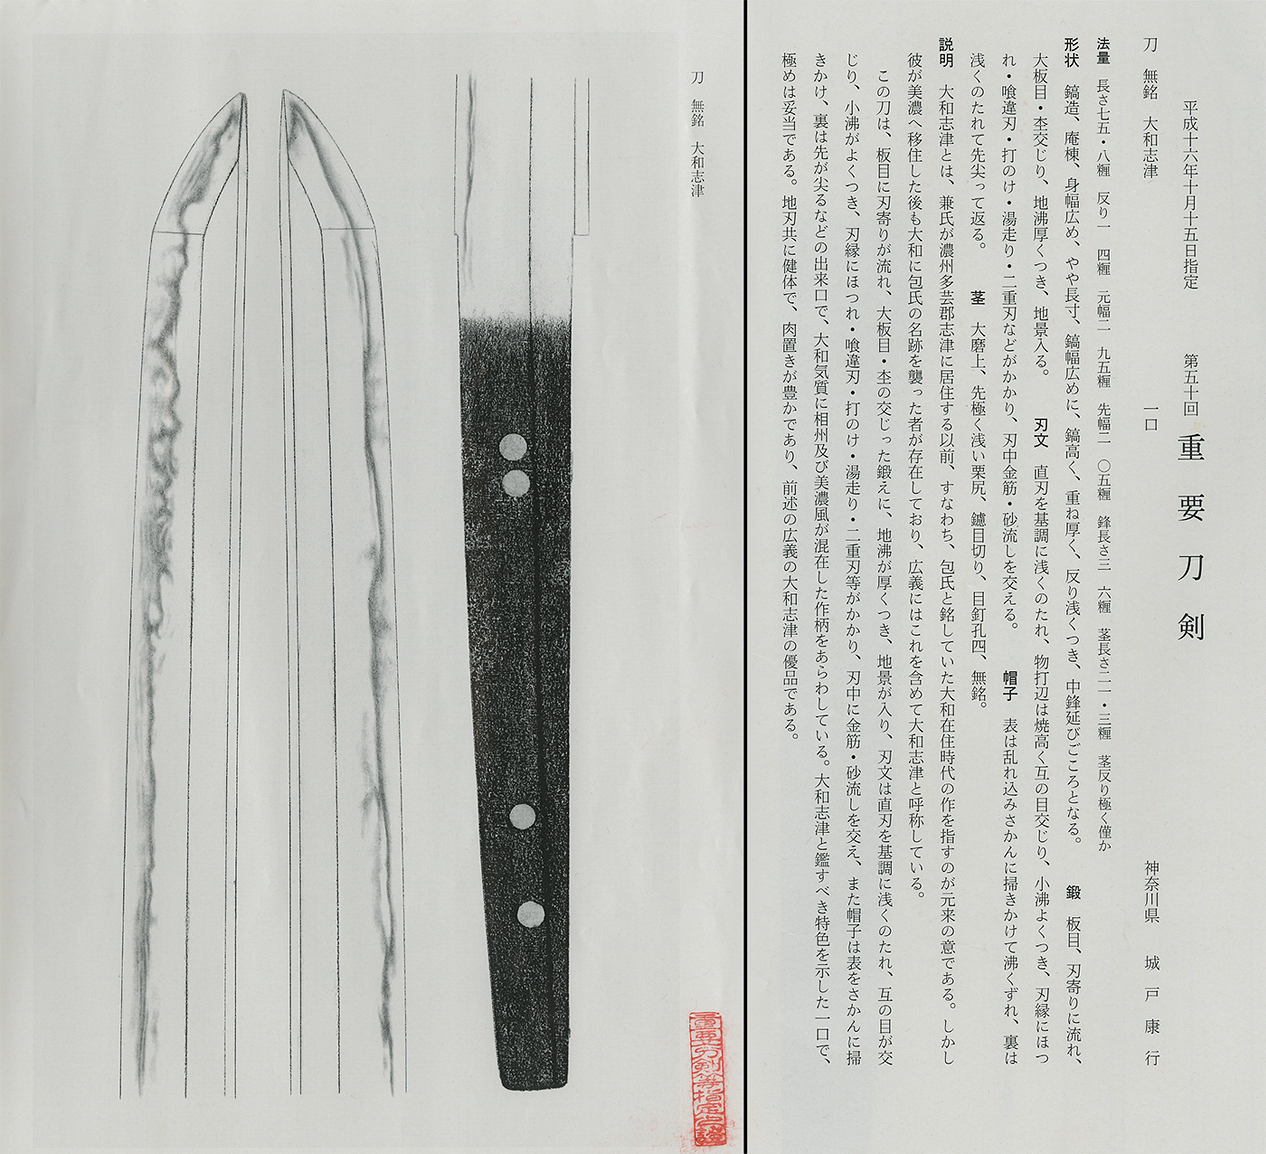 平成十六年十月十五日指定　第五十回 重要刀剣
刀　無銘　大和志津　一口　神奈川県　城戸康行
法量　長さ七五・八糎　反り一　四糎　元幅二　九五糎　先幅二　〇五糎　鋒長さ三　六糎　茎長さ二一・三糎　茎反り極く僅か
形状　鎬造、庵棟、身幅広め、やや長寸、鎬幅広めに、鎬高く、重ね厚く、反り浅くつき、中鋒延びごころとなる。　鍛　板目、刃寄りに流れ、
大板目・杢交じり、地沸厚くつき、地景入る。　刃文　直刃を基調に浅くのたれ、物打辺は焼高く互の目交じり、小沸よくつき、刃縁にほつ
れ・喰違刃・打のけ・湯走り・二重刃などがかかり、刃中金筋・砂流しを交える。　帽子　表は乱れ込みさかんに掃きかけて沸くずれ、裏は
浅くのたれて先尖って返る。　茎　大磨上、先極く浅い栗尻、鑢目切り、目釘孔四、無銘。
説明　大和志津とは、兼氏が濃州多芸郡志津に居住する以前、すなわち、包氏と銘していた大和在住時代の作を指すのが元来の意である。しかし
彼が美濃へ移住した後も大和に包氏の名跡を襲った者が存在しており、広義にはこれを含めて大和志津と呼称している。
この刀は、板目に刃寄りが流れ、大板目・杢の交じった鍛えに、地沸が厚くつき、地景が入り、刃文は直刃を基調に浅くのたれ、互の目が交
じり、小沸がよくつき、刃縁にほつれ・喰違刃・打のけ・湯走り・二重刃等がかかり、刃中に金筋・砂流しを交え、また帽子は表をさかんに掃
きかけ、裏は先が尖るなどの出来口で、大和気質に相州及び美濃風が混在した作柄をあらわしている。大和志津と鑑すべき特色を示した一口で、
極めは妥当である。地刃共に健体で、肉置きが豊かであり、前述の広義の大和志津の優品である。
刀　無銘　大和志津
重要刀剣等指定之證